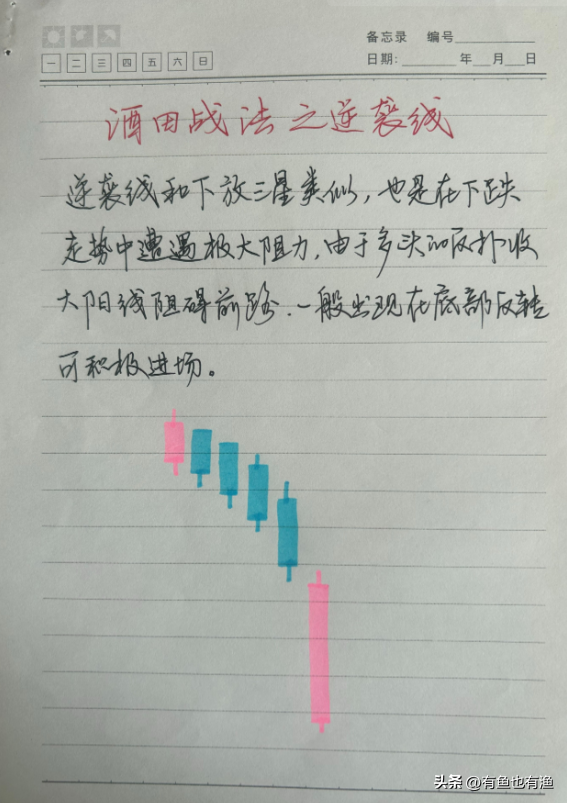 备忘录 编号
一 二 三 四 五 六 日
日期: 年 月 日
酒田战法之逆袭线
逆袭线和下放三星类似,也是在下跌
走势中遭遇极大阻力,由于多头的反扑收
大阳线阻碍前路.一般出现在底部反转
可积极进场。
头条 @有鱼也有渔